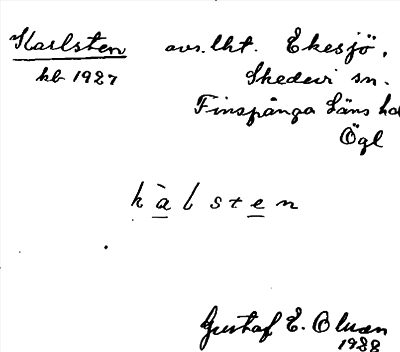 Karlsten avs. lht. Ekesjö,
kb 1927 Skedevi sn.
Finspånga Läns hd
Ögl
kàlsten
Gustaf E. Olsson
1928